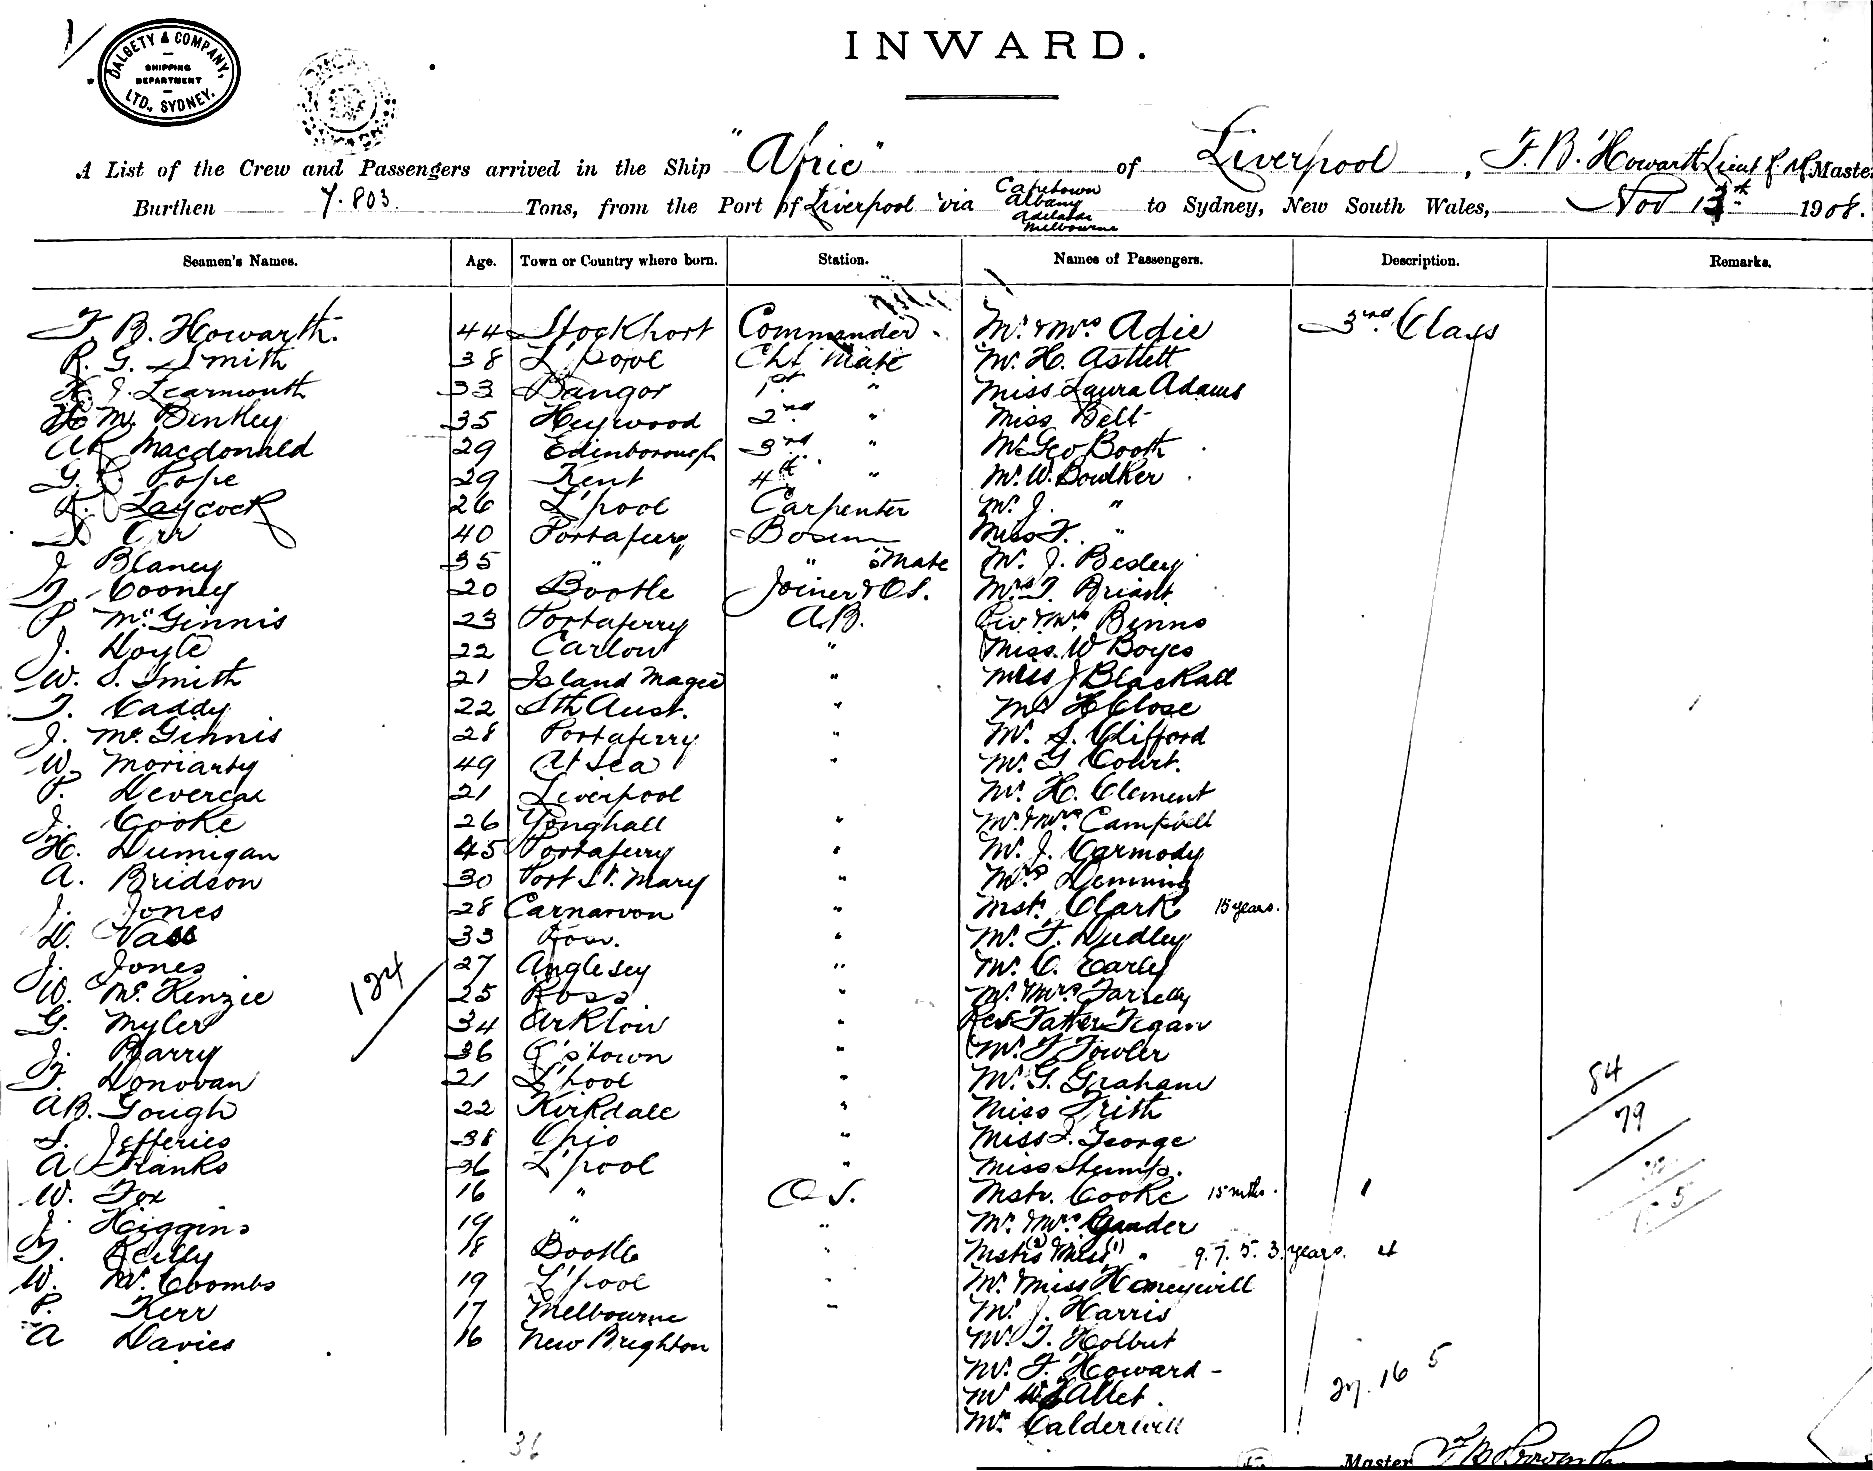 1/
DALGETY & COMPANY,
SHIPPING
DEPARTMENT
LTD., SYDNEY.
INWARD.
A List of the Crew and Passengers arrived in the Ship "Afric" of Liverpool, F. B. Howarth Lieut Master
Burthen 7.803. Tons, from the Port of Liverpool via Capetown Albany Adelaide Melbourne to Sydney, New South Wales, Nov 1908.
Seamen's Names. Age. Town or Country where born. Station. Names of Passengers. Description. Remarks.
F B. Howarth. 44 Stockport Commander Mr & Mrs Adie 3rd Class
R. G. Smith 38 L'pool Chf Mate Mr. H. Astlett
J. Learmouth 33 Bangor 1st " Miss Laura Adams
M. Binkley 35 Heywood 2nd " Miss Belt
Macdonald 29 Edinborough 3rd " Mr Geo Booth
G. Pope 29 Kent 4th " Mr. W. Bowker
Laycock 26 L'pool Carpenter Mr. J. "
Orr 40 Portaferry Bosun Miss F. "
J Blaney 35 " " s Mate Mr. J. Besley
Cooney 20 Bootle Joiner & O.S. Mrs Briant
P McGinnis 23 Portaferry A.B. Mrs Binns
J. Doyle 22 Carlow " Miss. W Boyes
W. S. Smith 21 Island Magee " Miss J Blackall
T. Caddy 22 Sth Aust. " H Close
J. McGinnis 28 Portaferry " Mr. S. Clifford
W. Moriarty 49 At Sea " Mr. G Court.
P. 21 Liverpool Mr. H. Clement
J. Cooke 26 Yonghall " Mr. Mrs. Campbell
H. Dumigan 45 Portaferry " Mr. J. Carmody
A. Bridson 30 Port St. Mary " Mrs Demming
J. Jones 28 Carnarvon " Mstr. Clark 15 years.
D. Vass 33 " Mr. F. Dudley
J. Jones 27 Anglesey " Mr. C. Early
W. McKenzie 25 Ross " Mr. Mrs Farrelly
G. Myler 34 Arklow " Rev Father Fegan
J. Barry 36 Q'stown " Mr. F Fowler
Donovan 21 L'pool " Mr. G. Graham
A B. Gough 22 Kirkdale " Miss Frith
S. Jefferies 38 Ohio " Miss George
A Franks 36 L'pool " Miss
W. Fox 16 " O S. Mstr. Cooke 15 mths. 1
J. Higgins 19 " " Mr. Mrs Gander
Reilly 18 Bootle " Mstrs (3) Miss (1) " 9. 7. 5. 3. years. 4
W. Mc Coombs 19 L'pool " Mr. Miss Honeywill
P. Kerr 17 Melbourne " Mr. J. Harris
A Davies 16 New Brighton Mr. J. Holbut
Mr. F. Howard
Mr Allet.
Mr. Calderwill
124
84
79
5
27. 16 5
36
Master F B Howarth